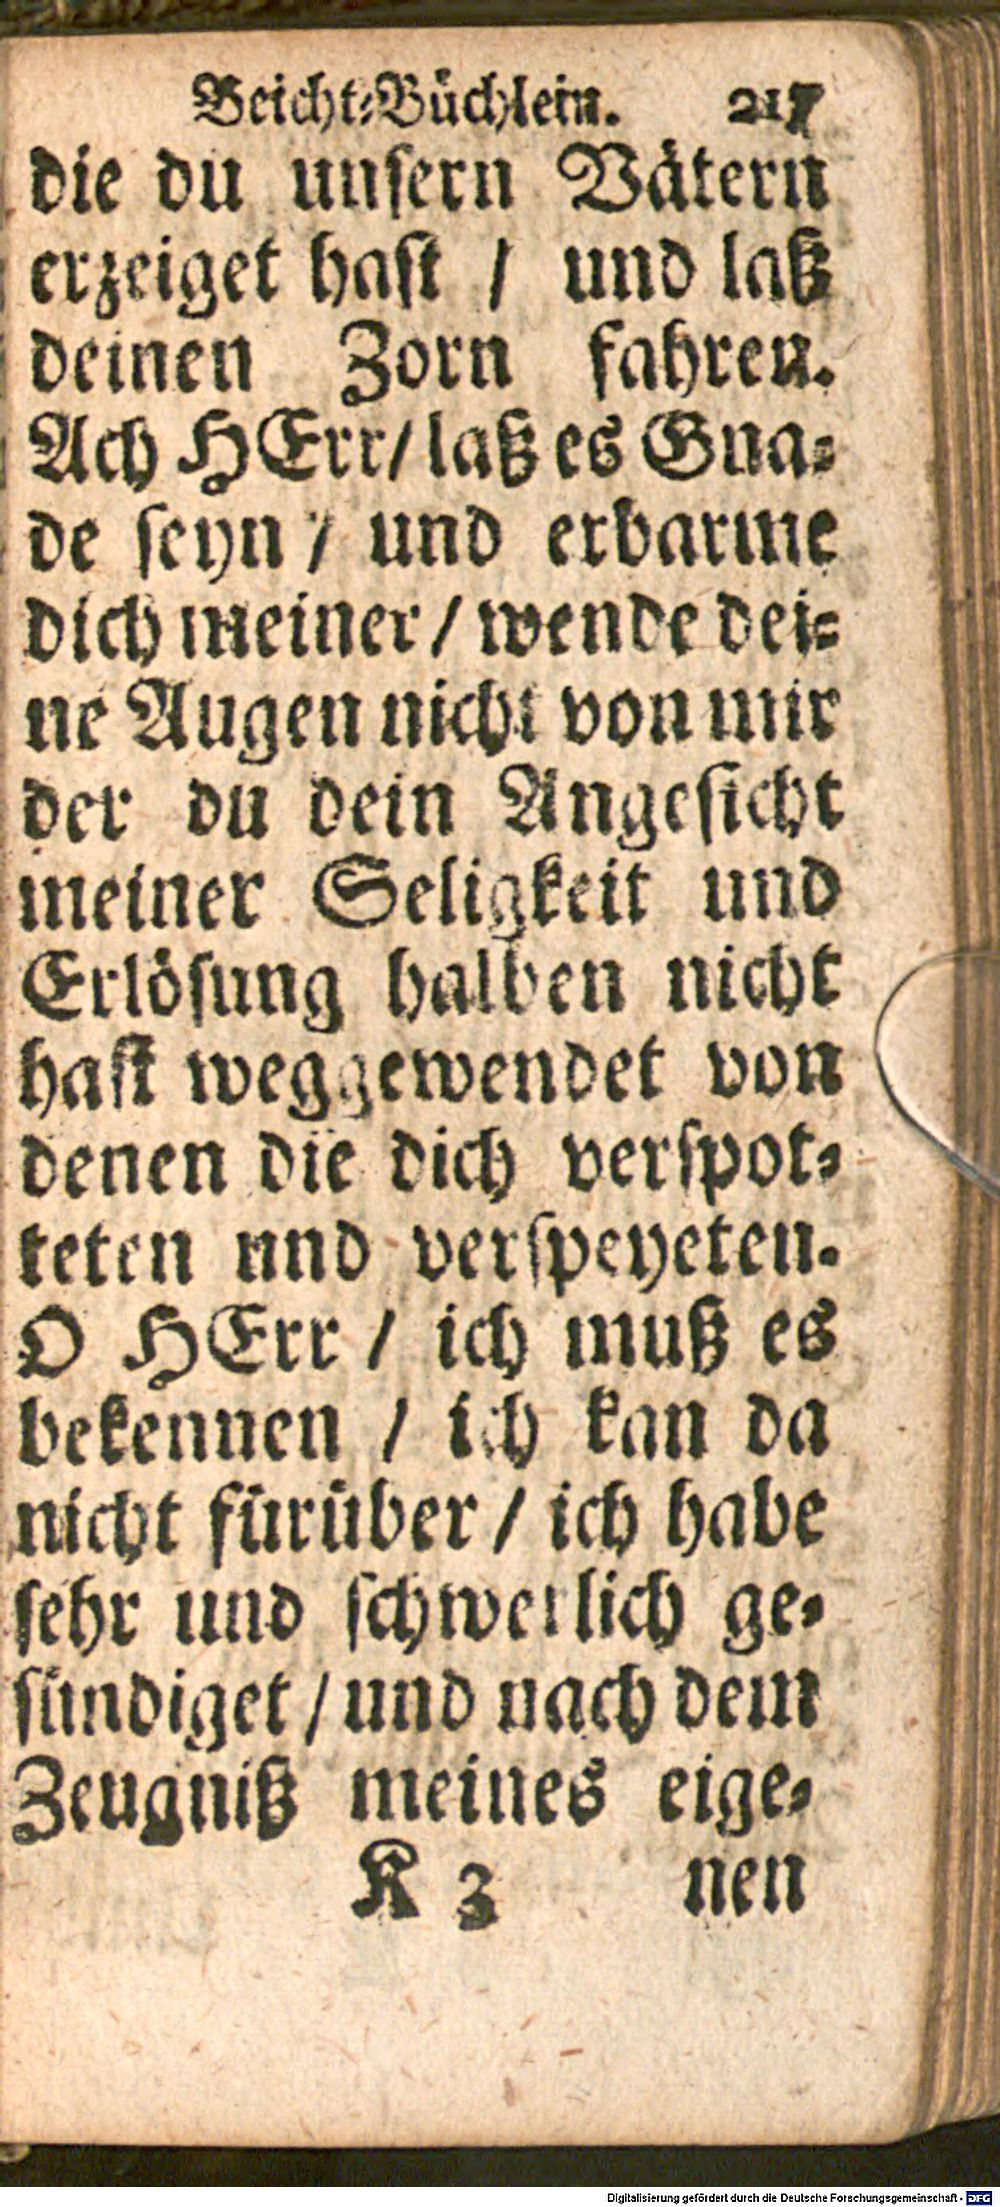 Beicht-Büchlein. 217
die du unsern Vätern
erzeiget hast / und laß
deinen Zorn fahren.
Ach HErr / laß es Gna-
de seyn / und erbarme
dich meiner / wende dei-
ne Augen nicht von mir
der du dein Angesicht
meiner Seligkeit und
Erlösung halben nicht
hast weggewendet von
denen die dich verspot-
teten und verspeyeten.
O HErr / ich muß es
bekennen / ich kan da
nicht fürüber / ich habe
sehr und schwerlich ge-
sündiget / und nach dem
Zeugniß meines eige-
K 3 nen
Digitalisierung gefördert durch die Deutsche Forschungsgemeinschaft - DFG